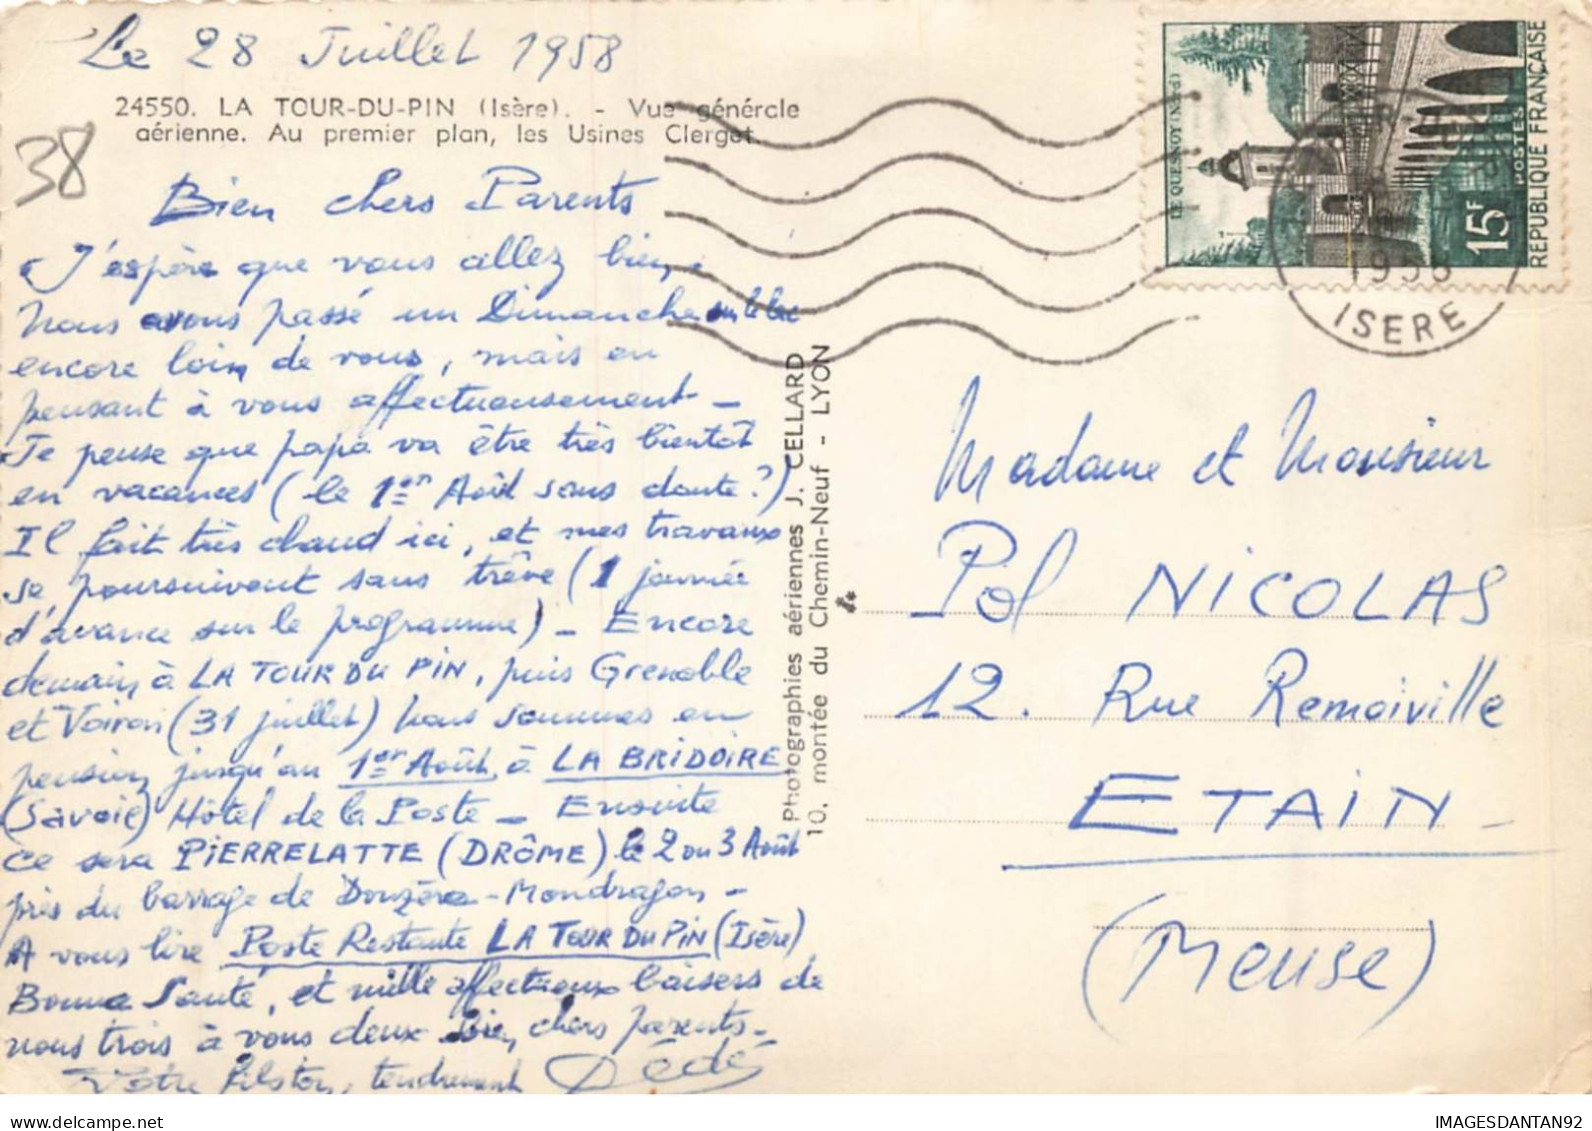 Le 28 Juillet 1958
24550. LA TOUR-DU-PIN (Isère). - Vue générale
aérienne. Au premier plan, les Usines Clerget.
38
Bien chers Parents
J'espère que vous allez bien,
nous avons passé un Dimanche sur le lac
encore loin de vous, mais en
pensant à vous affectueusement -
Je pense que papa va être très bientôt
en vacances (le 1er Août sans doute ?)
Il fait très chaud ici, et mes travaux
se poursuivent sans trêve (1 journée
d'avance sur le programme) - Encore
demain à LA TOUR DU PIN, puis Grenoble
et Voiron (31 juillet) Nous sommes en
pension jusqu'au 1er Août à LA BRIDOIRE
(Savoie) Hôtel de la Poste - Ensuite
ce sera PIERRELATTE (DRÔME) le 2 ou 3 Août
près du barrage de Donzère-Mondragon -
A vous lire Poste Restante LA TOUR DU PIN (Isère)
Bonne Santé, et mille affectueux baisers de
nous trois à vous deux bien chers parents -
Votre fiston, tendrement Dédé
Photographies aériennes J. CELLARD
10, montée du Chemin-Neuf - LYON
LE QUESNOY (NORD)
15F
POSTES
REPUBLIQUE FRANÇAISE
1958
ISERE
Madame et Monsieur
Pol NICOLAS
12. Rue Remoiville
ETAIN -
(Meuse)
IMAGESDANTAN92